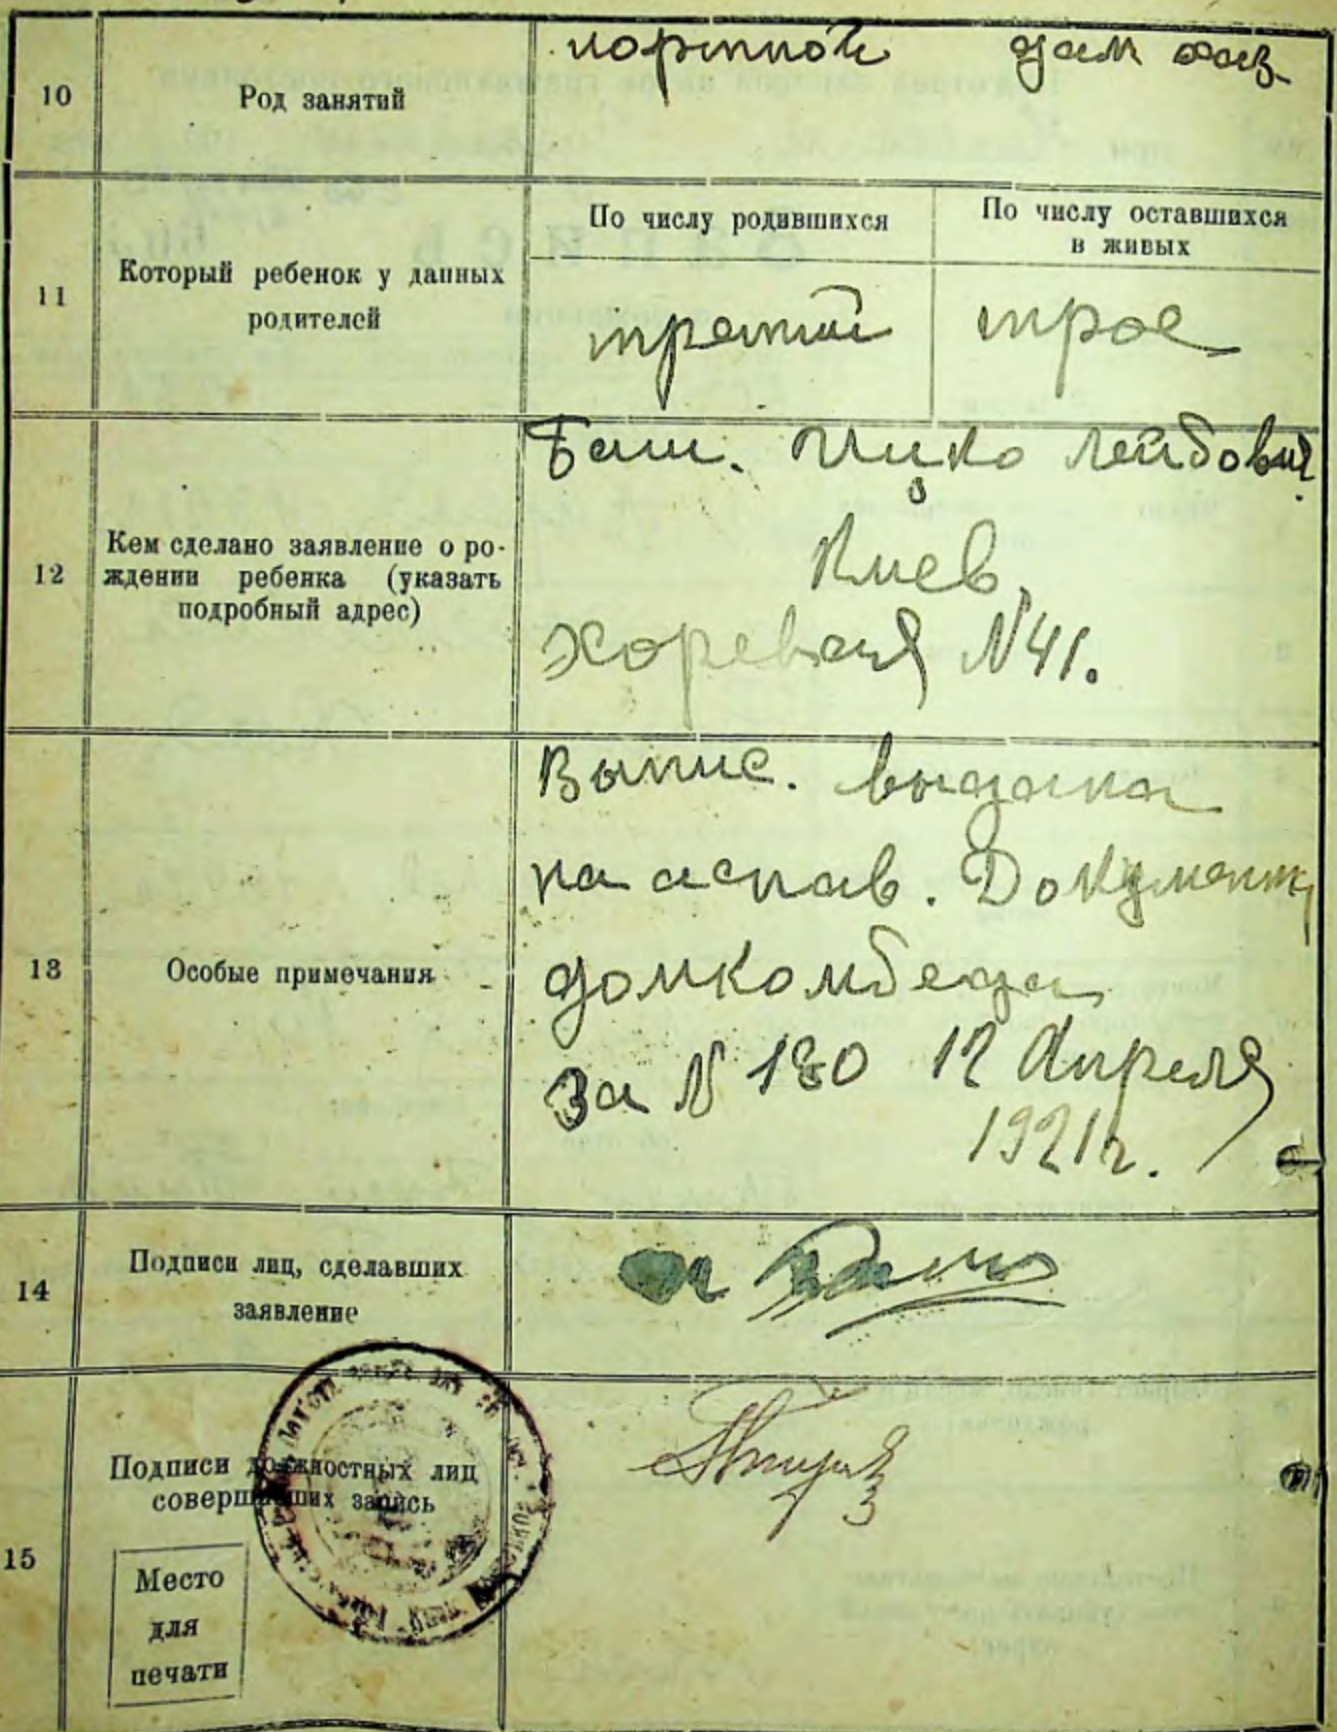 10
Род занятий
портной дом хоз.
11
Который ребенок у данных
родителей
По числу родившихся
третий
По числу оставшихся
в живых
трое
12
Кем сделано заявление о ро-
ждении ребенка (указать
подробный адрес)
Баш. Ицко Лейбович
Киев,
Хоревая N 41.
13
Особые примечания
Выпис. выдана
на аснав. Документ
домкомбеда
за N 180 12 Апреля
1921 г.
14
Подписи лиц, сделавших
заявление
15
Подписи должностных лиц
совершивших запись
Место
для
печати